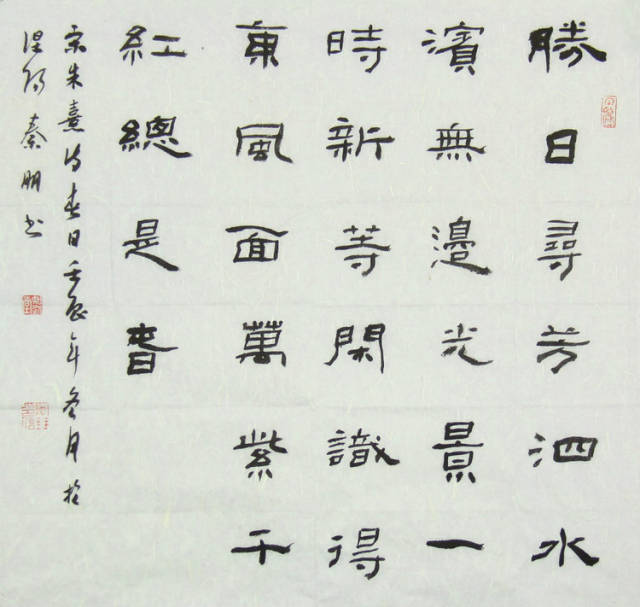 勝日尋芳泗水
濱無邊光景一
時新等閑識得
東風面萬紫千
紅總是春
宋朱熹詩春日壬辰年冬月於
秦朋书